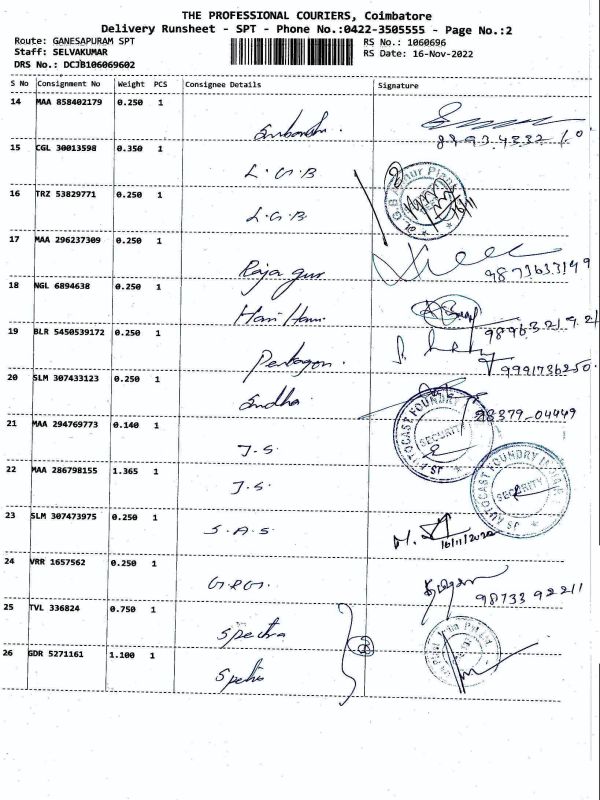 THE PROFESSIONAL COURIERS, Coimbatore
Delivery Runsheet - SPT - Phone No.:0422-3505555 - Page No.:2
Route: GANESAPURAM SPT
Staff: SELVAKUMAR
DRS No.: DCJB106069602
RS No.: 1060696
RS Date: 16-Nov-2022
S No Consignment No Weight PCS Consignee Details Signature
14 MAA 858402179 0.250 1
15 CGL 30013598 0.350 1 L.G.B
16 TRZ 53829771 0.250 1 L.G.B
17 MAA 296237309 0.250 1 Raja gur
18 NGL 6894638 0.250 1 Hari Hari
19 BLR 5450539172 0.250 1 Pentagon. 9991736250.
20 SLM 307433123 0.250 1 Sudha 98379-04449
21 MAA 294769773 0.140 1 J.S.
22 MAA 286798155 1.365 1 J.S.
JS AUTOCAST FOUNDRY INDIA
SECURITY
23 SLM 307473975 0.250 1 S.A.S. 16/11/2022
24 VRR 1657562 0.250 1 98733 92211
25 TVL 336824 0.750 1 Spectra
26 GDR 5271161 1.100 1